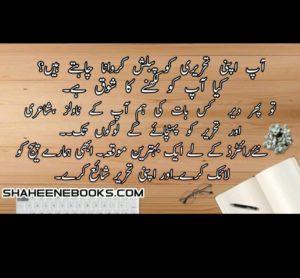 آپ اپنی تحریری کو پبلش کروانا چاہتے ہیں؟
کیا آپ کو لکھنے کا شوق ہے۔
تو پھر دیر کس بات کی ہم آپ کے ناولز ،شاعری
اور تحریر کو پہنچائے گے لوگوں تک۔۔
نئے رائٹرز کے لے ایک بہترین موقعہ۔ ابھی ہمارے پیج کو
لائک کرے۔اور اپنی تحریر شائع کرے۔
SHAHEENEBOOKS.COM